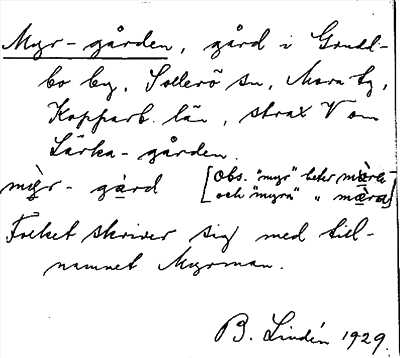 Myr-gården, gård i Gruddbo by, Sollerö sn, Mora tg,
Kopparb. län, strax V om
Lärka-gården.
mỳr-gård [Obs. "myr" heter
och "myra" "
Folket skriver sig med till-
namnet Myrman.
B. Lindén 1929.